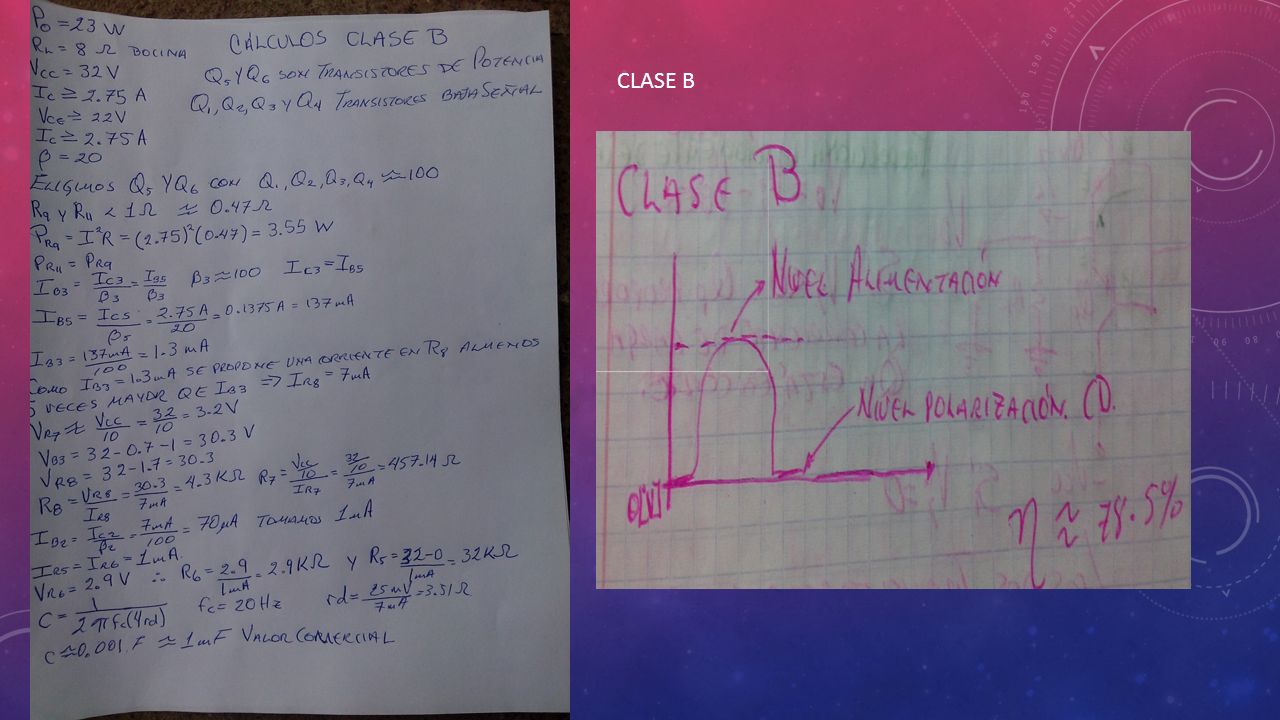 P₀ = 23 W
RL = 8 Ω BOCINA
CÁLCULOS CLASE B
Vcc = 32 V
Q₅ Y Q₆ SON TRANSISTORES DE POTENCIA
Ic ≥ 2.75 A
Q₁, Q₂, Q₃ Y Q₄ TRANSISTORES BAJA SEÑAL
VCE ≥ 22V
Ic ≥ 2.75 A
β = 20
ELIGIMOS Q₅ Y Q₆ CON Q₁, Q₂, Q₃, Q₄ ≈ 100
R₉ Y R₁₁ < 1 Ω ≈ 0.47 Ω
PR₉ = I²R = (2.75)²(0.47) = 3.55 W
PR₁₁ = PR₉
IB3 = IC3/β3 = IB5/β3 β3 ≈ 100 IC3 = IB5
IB5 = IC5/β5 = 2.75 A/20 = 0.1375 A = 137 mA
IB3 = 137mA/100 = 1.3 mA
COMO IB3 = 1.3 mA SE PROPONE UNA CORRIENTE EN R8 ALMENOS
5 VECES MAYOR QUE IB3 ⇒ IR8 = 7mA
VR7 ≈ Vcc/10 = 32/10 = 3.2 V
VB3 = 32 - 0.7 - 1 = 30.3 V
VR8 = 32 - 1.7 = 30.3
R8 = VR8/IR8 = 30.3/7mA = 4.3 KΩ R7 = (Vcc/10)/IR7 = (32/10)/7mA = 457.14 Ω
IB2 = IC2/β2 = 7mA/100 = 70 µA TOMAMOS 1mA
IR5 = IR6 = 1mA.
VR6 = 2.9 V ∴ R6 = 2.9/1mA = 2.9 KΩ Y R5 = 32-0/1mA = 32 KΩ
C = 1/2πfc(4rd) fc = 20 Hz rd = 25 mV/7mA = 3.51 Ω
C ≈ 0.001 F ≈ 1mF VALOR COMERCIAL
CLASE B
CLASE B
NIVEL ALIMENTACIÓN
NIVEL POLARIZACIÓN CD.
0[V]
η ≈ 78.5%